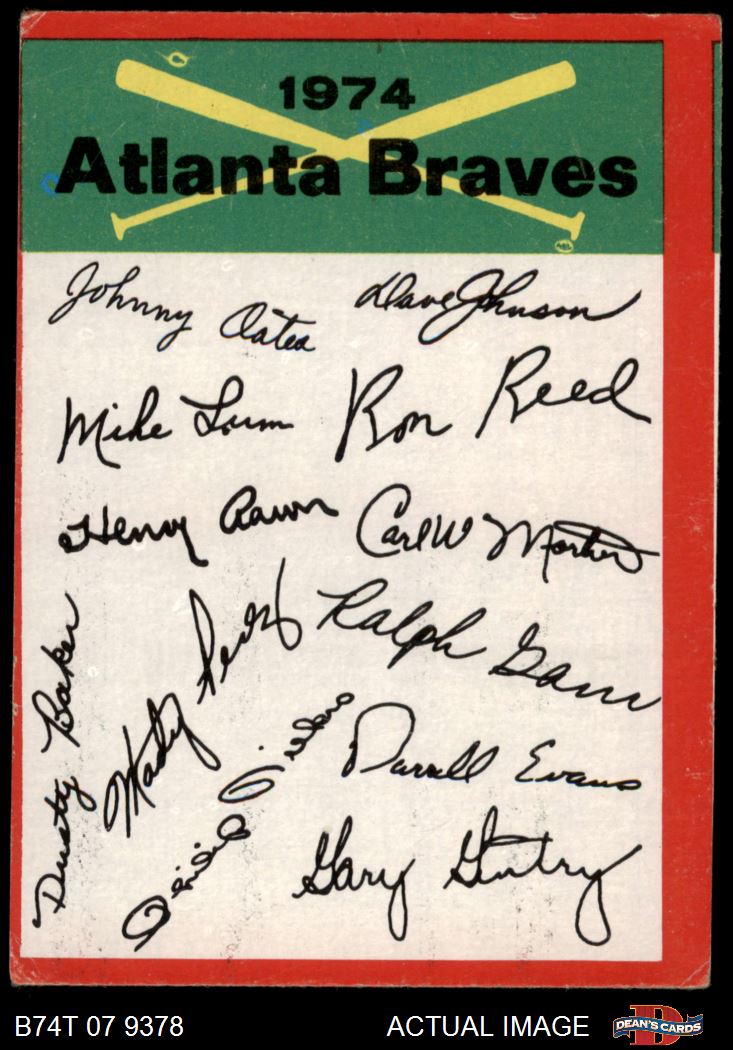 1974
Atlanta Braves
Johnny Oates
Dave Johnson
Mike Lum
Ron Reed
Henry Aaron
Carl W Morton
Ralph Garr
Dusty Baker
Marty Perez
Darrell Evans
Gary Gentry
B74T 07 9378 ACTUAL IMAGE
DEAN'S CARDS